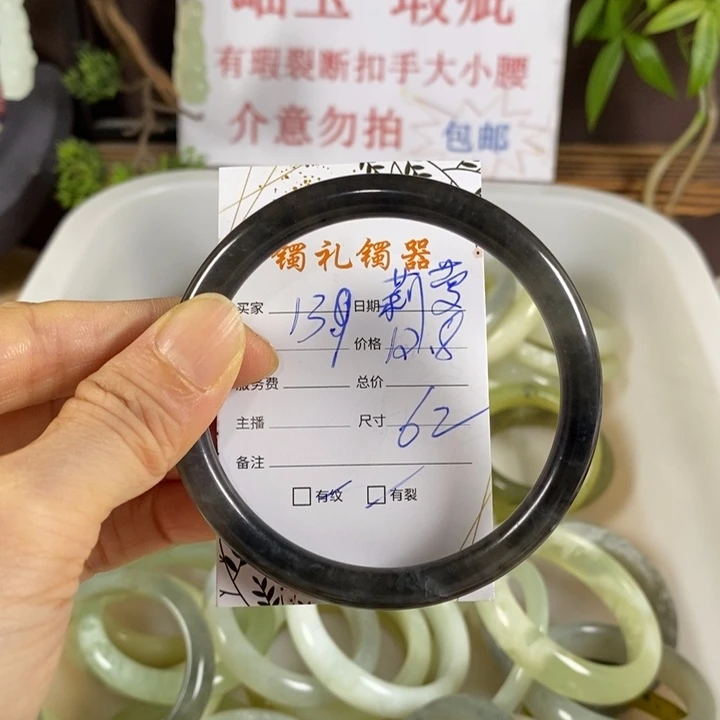 岫玉 瑕疵
有瑕裂断扣手大小腰
介意勿拍 包邮
镯礼镯器
买家 139 日期 莉蔓
价格
服务费 总价
主播 尺寸 62
备注
有纹 有裂